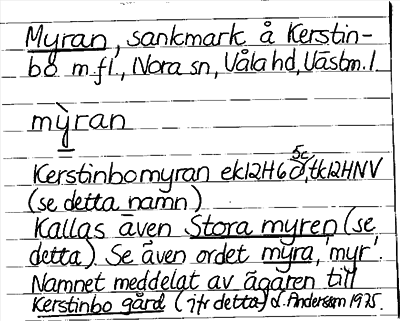 Myran, sankmark å Kerstin-
bo m.fl., Nora sn, Våla hd, Västm. l.
mỳran
Kerstinbomyran ek12H6 5c, tk12HNV
(se detta namn)
Kallas även Stora myren (se
detta). Se även ordet myra, 'myr'.
Namnet meddelat av ägaren till
Kerstinbo gård (jfr detta) d. Andersson 1975.